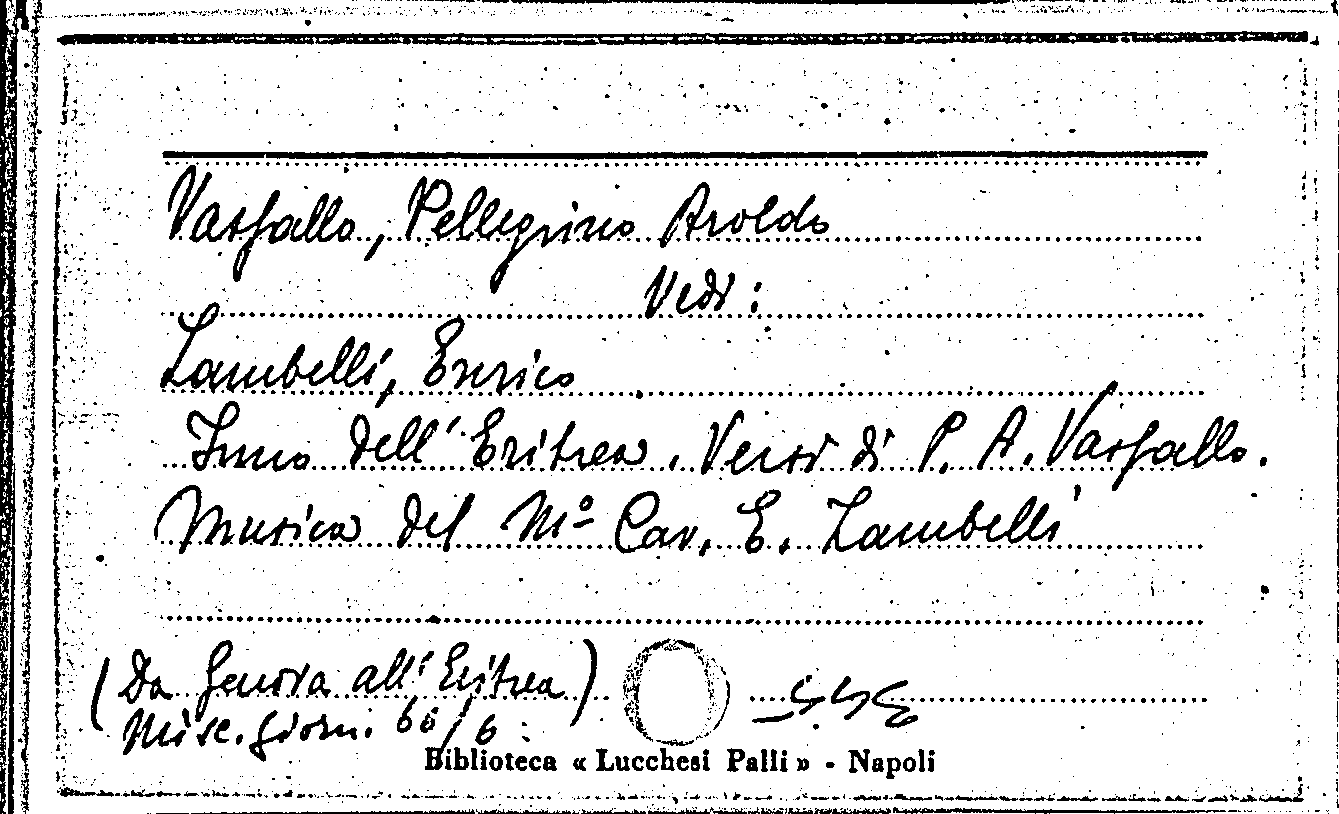 Vassallo, Pellegrino Aroldo
Vedi:
Zambelli, Enrico
Inno dell'Eritrea. Versi di P. A. Vassallo.
Musica del Mº Cav. E. Zambelli
(Da Genova all'Eritrea)
Misc. giorn. 60/6.
Biblioteca « Lucchesi Palli » - Napoli